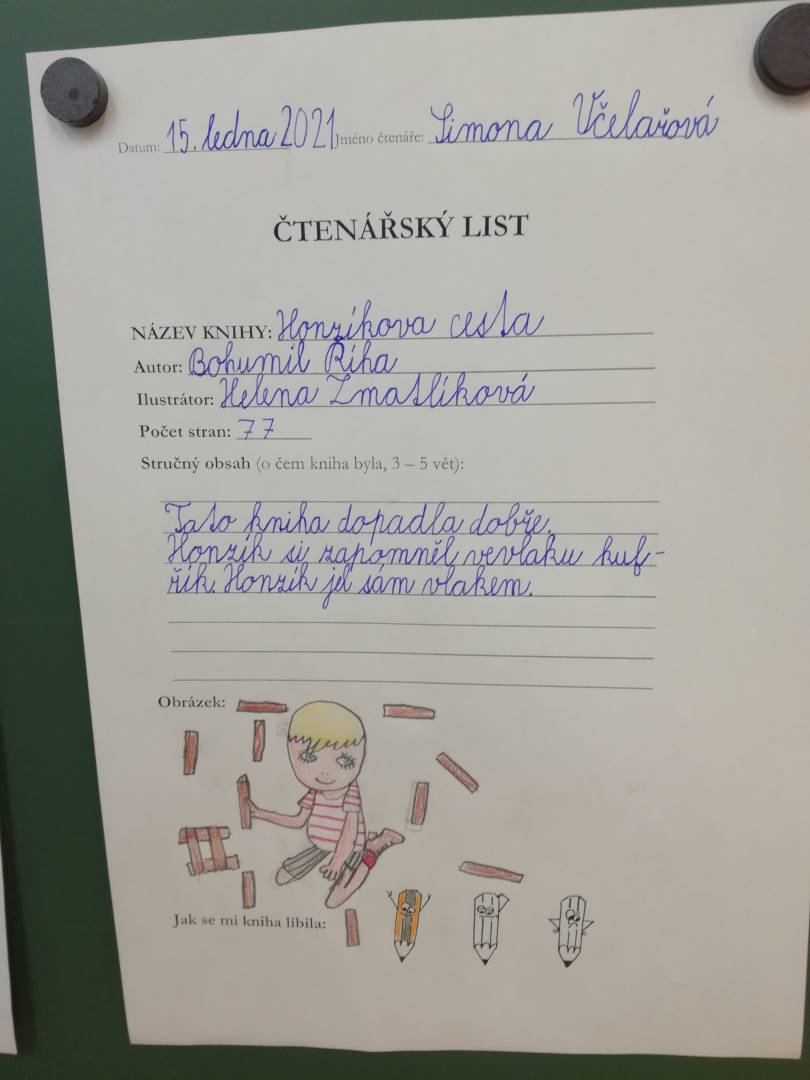 Datum: 15. ledna 2021 Jméno čtenáře: Simona Včelařová
ČTENÁŘSKÝ LIST
NÁZEV KNIHY: Honzíkova cesta
Autor: Bohumil Říha
Ilustrátor: Helena Zmatlíková
Počet stran: 77
Stručný obsah (o čem kniha byla, 3 – 5 vět):
Tato kniha dopadla dobře.
Honzík si zapomněl ve vlaku kuf-
řík. Honzík jel sám vlakem.
Obrázek:
Jak se mi kniha líbila: